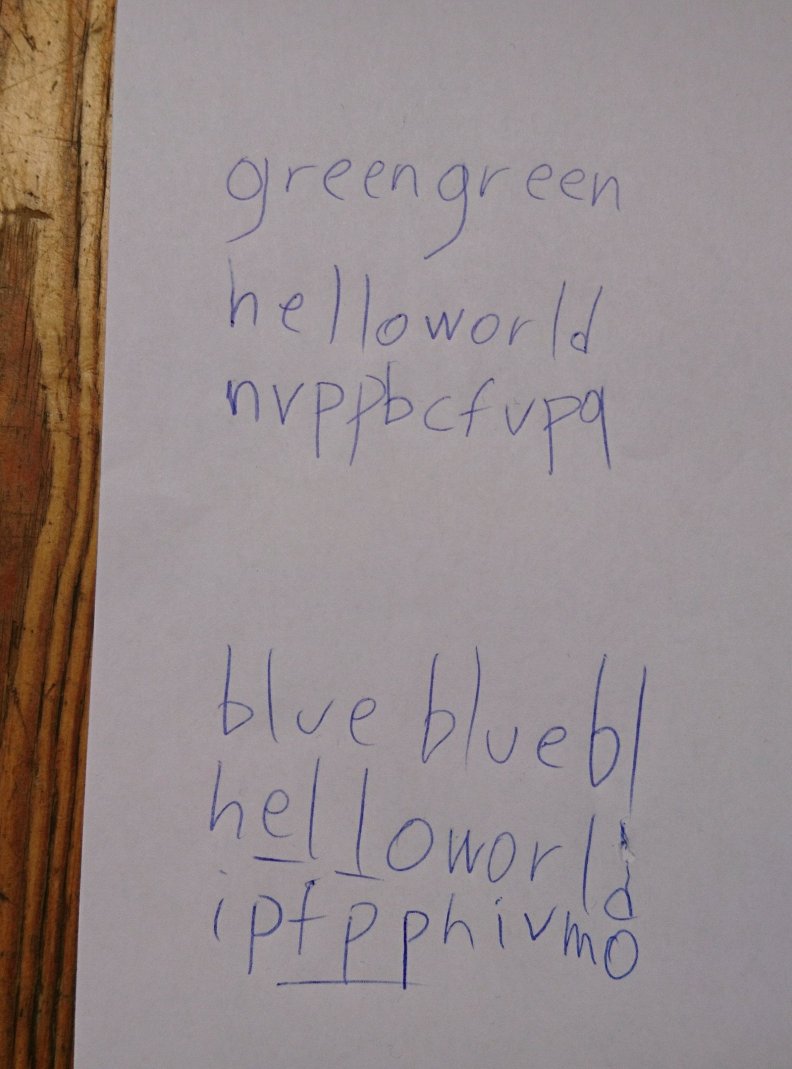 greengreen
helloworld
nvppbcfvpq
blue bluebl
helloworld
ipfpphivmo